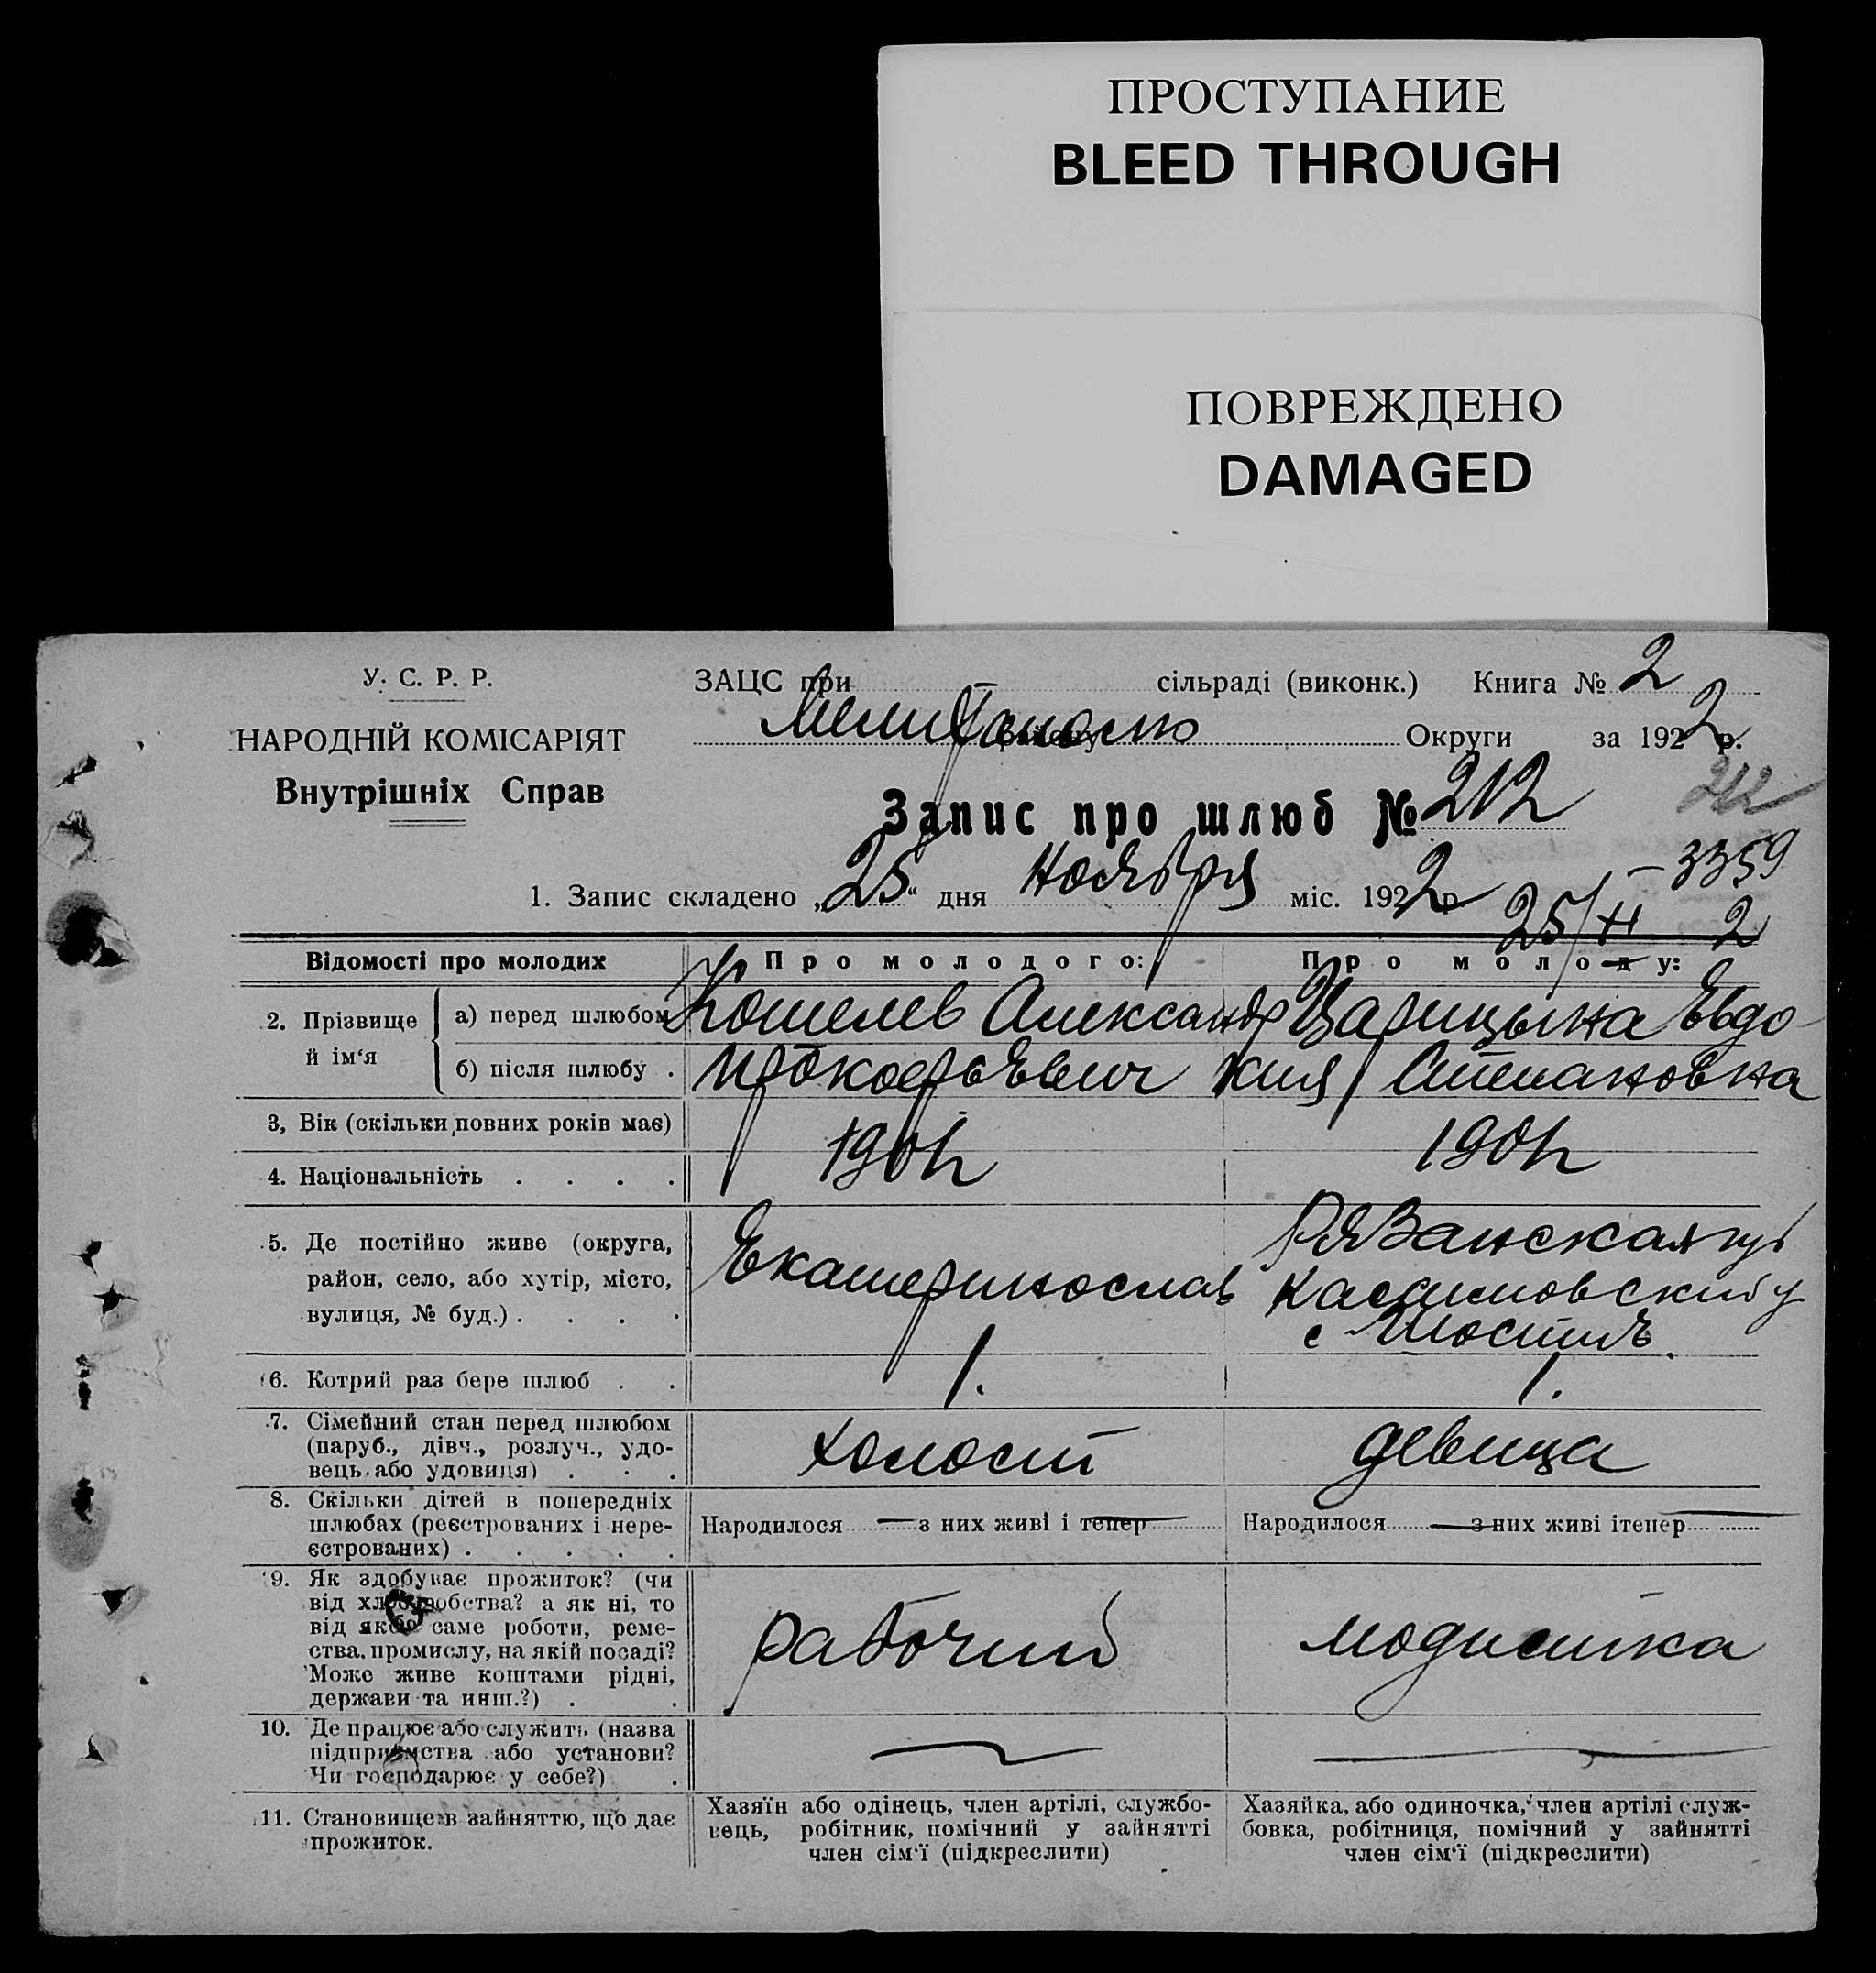 ПРОСТУПАНИЕ
BLEED THROUGH
ПОВРЕЖДЕНО
DAMAGED
У. С. Р. Р.
НАРОДНІЙ КОМІСАРІЯТ
Внутрішніх Справ
ЗАЦС при сільраді (виконк.) Книга № 2
Округи за 1922 р.
Запис про шлюб № 212
212
3359
1. Запис складено „25“ дня Ноября міс. 1922 р
25/XI 2
Відомості про молодих
Про молодого:
Про молоду:
2. Прізвище й ім‘я
а) перед шлюбом
б) після шлюбу .
Кошелев Александр
Прокофьевич
Царицына Евдо
кия Степановна
3, Вік (скільки повних років має)
4. Національність . . . .
190
190
5. Де постійно живе (округа,
район, село, або хутір, місто,
вулиця, № буд.) . . . .
Екатеринослав
Рязанская губ
Касимовский у
с
6. Котрий раз бере шлюб . .
1.
1.
7. Сімейний стан перед шлюбом
(паруб., дівч., розлуч., удо-
вець або удовиця) . . .
холост
девица
8. Скільки дітей в попередніх
шлюбах (реєстрованих і нере-
єстрованих) . . . . .
Народилося — з них живі і тепер —
Народилося — з них живі і тепер —
9. Як здобуває прожиток? (чи
від хліборобства? а як ні, то
від якої саме роботи, реме-
ства, промислу, на якій посаді?
Може живе коштами рідні,
держави та инш.?) . .
рабочий
модистка
10. Де працює або служить (назва
підприємства або установи?
Чи господарює у себе?) .
11. Становище в зайняттю, що дає
прожиток.
Хазяїн або одінець, член артілі, службо-
вець, робітник, помічний у зайнятті
член сім‘ї (підкреслити)
Хазяйка, або одиночка, член артілі служ-
бовка, робітниця, помічний у зайнятті
член сім‘ї (підкреслити)